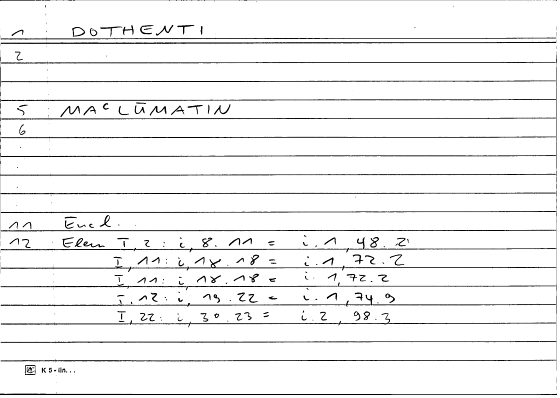 1 DOTHENTI
2
5 MAᶜLŪMATIN
6
11 Eucl.
12 Elem I, 2 : i, 8. 11 = i. 1, 48. 2
I, 11 : i, 18. 18 = i. 1, 72. 2
I, 11 : i, 18. 18 = i. 1, 72. 2
I, 12 : i, 19. 22 = i. 1, 74. 9
I, 22 : i, 30. 23 = i. 2, 98. 3
K 5 - lin. . .